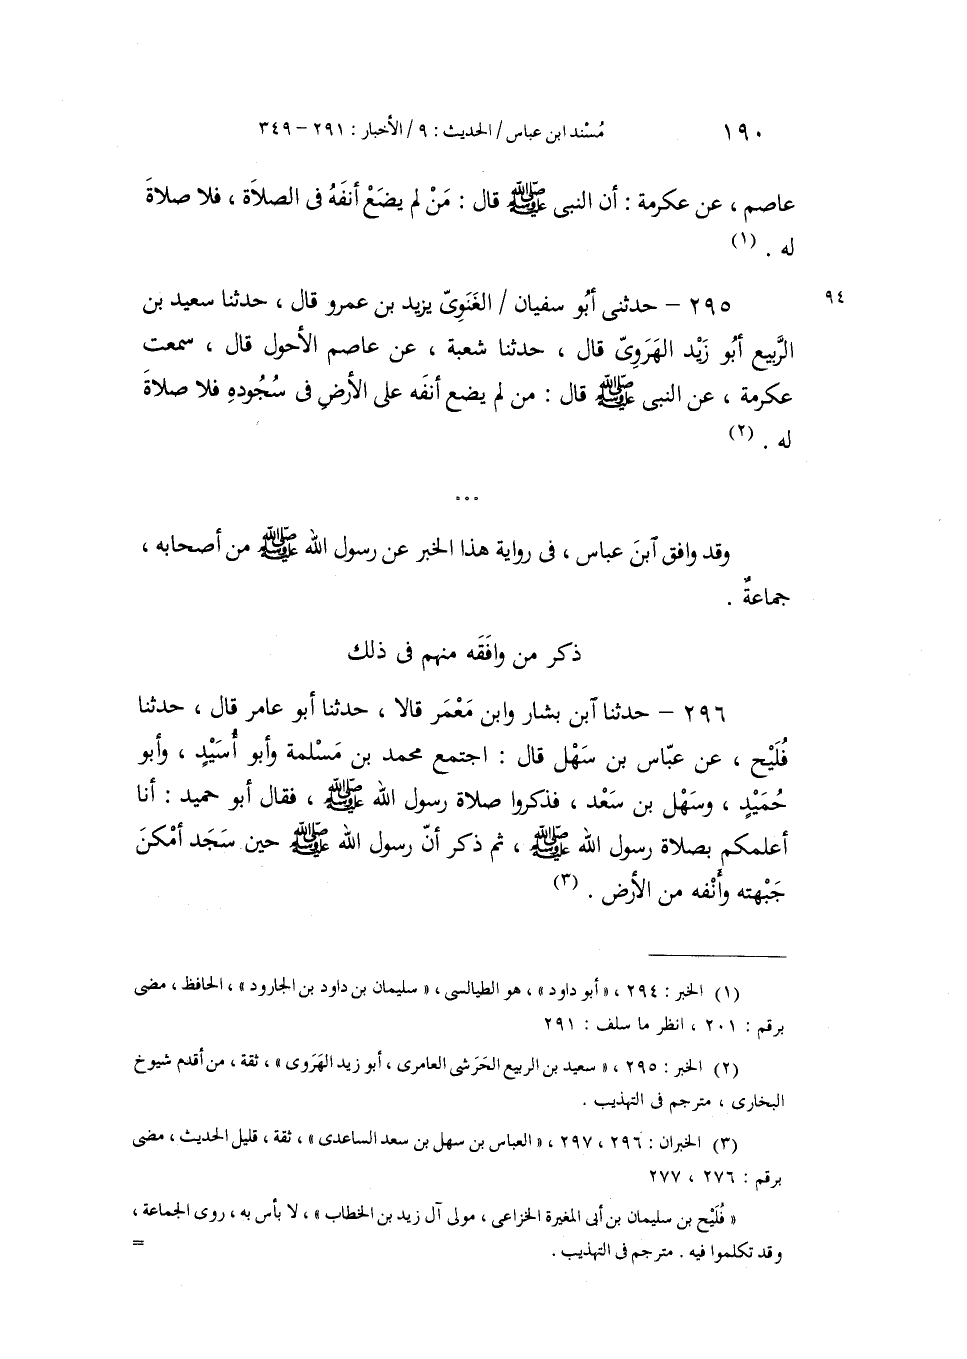 ١٩٠ مُسْند ابن عباس / الحديث : ٩ / الأخبار : ٢٩١ – ٣٤٩
عاصم ، عن عكرمة : أن النبى ﷺ قال : مَنْ لم يضَعْ أنفَهُ فى الصلاة ، فلا صلاةَ
له . (١)
٩٤
٢٩٥ – حدثنى أبُو سفيان / الغَنَوِىّ يزيد بن عمرو قال ، حدثنا سعيد بن
الرَّبيع أبُو زَيْد الهَرَوِىّ قال ، حدثنا شعبة ، عن عاصم الأحول قال ، سمعت
عكرمة ، عن النبى ﷺ قال : من لم يضع أنفَه على الأرضِ فى سُجُودهِ فلا صلاةَ
له . (٢)
...
وقد وافق ٱبنَ عباس ، فى رواية هذا الخبر عن رسول الله ﷺ من أصحابه ،
جماعةٌ .
ذكر من وافَقَه منهم فى ذلك
٢٩٦ – حدثنا ٱبن بشار وابن مَعْمَر قالا ، حدثنا أبو عامر قال ، حدثنا
فُلَيْح ، عن عبّاس بن سَهْل قال : اجتمع محمد بن مَسْلمة وأبو أُسَيْدٍ ، وأبو
حُمَيْدٍ ، وسَهْل بن سَعْد ، فذكروا صلاة رسول الله ﷺ ، فقال أبو حميد : أنا
أعلمكم بصلاة رسول الله ﷺ ، ثم ذكر أنّ رسول الله ﷺ حين سَجَد أمْكنَ
جَبْهته وأَنْفه من الأرض . (٣)
(١) الخبر : ٢٩٤ ، « أبو داود » ، هو الطيالسى ، « سليمان بن داود بن الجارود » ، الحافظ ، مضى
برقم : ٢٠١ ، انظر ما سلف : ٢٩١
(٢) الخبر : ٢٩٥ ، « سعيد بن الربيع الحَرَشى العامرى ، أبو زيد الهَرَوى » ، ثقة ، من أقدم شيوخ
البخارى ، مترجم فى التهذيب .
(٣) الخبران : ٢٩٦ ، ٢٩٧ ، « العباس بن سهل بن سعد الساعدى » ، ثقة ، قليل الحديث ، مضى
برقم : ٢٧٦ ، ٢٧٧
« فُلَيْح بن سليمان بن أبى المغيرة الخزاعى ، مولى آل زيد بن الخطاب » ، لا بأس به ، روى الجماعة ،
وقد تكلموا فيه . مترجم فى التهذيب . =